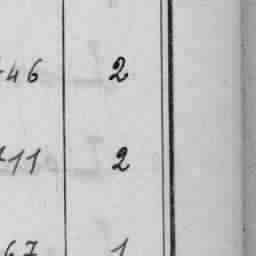 46 2
11 2
67 1